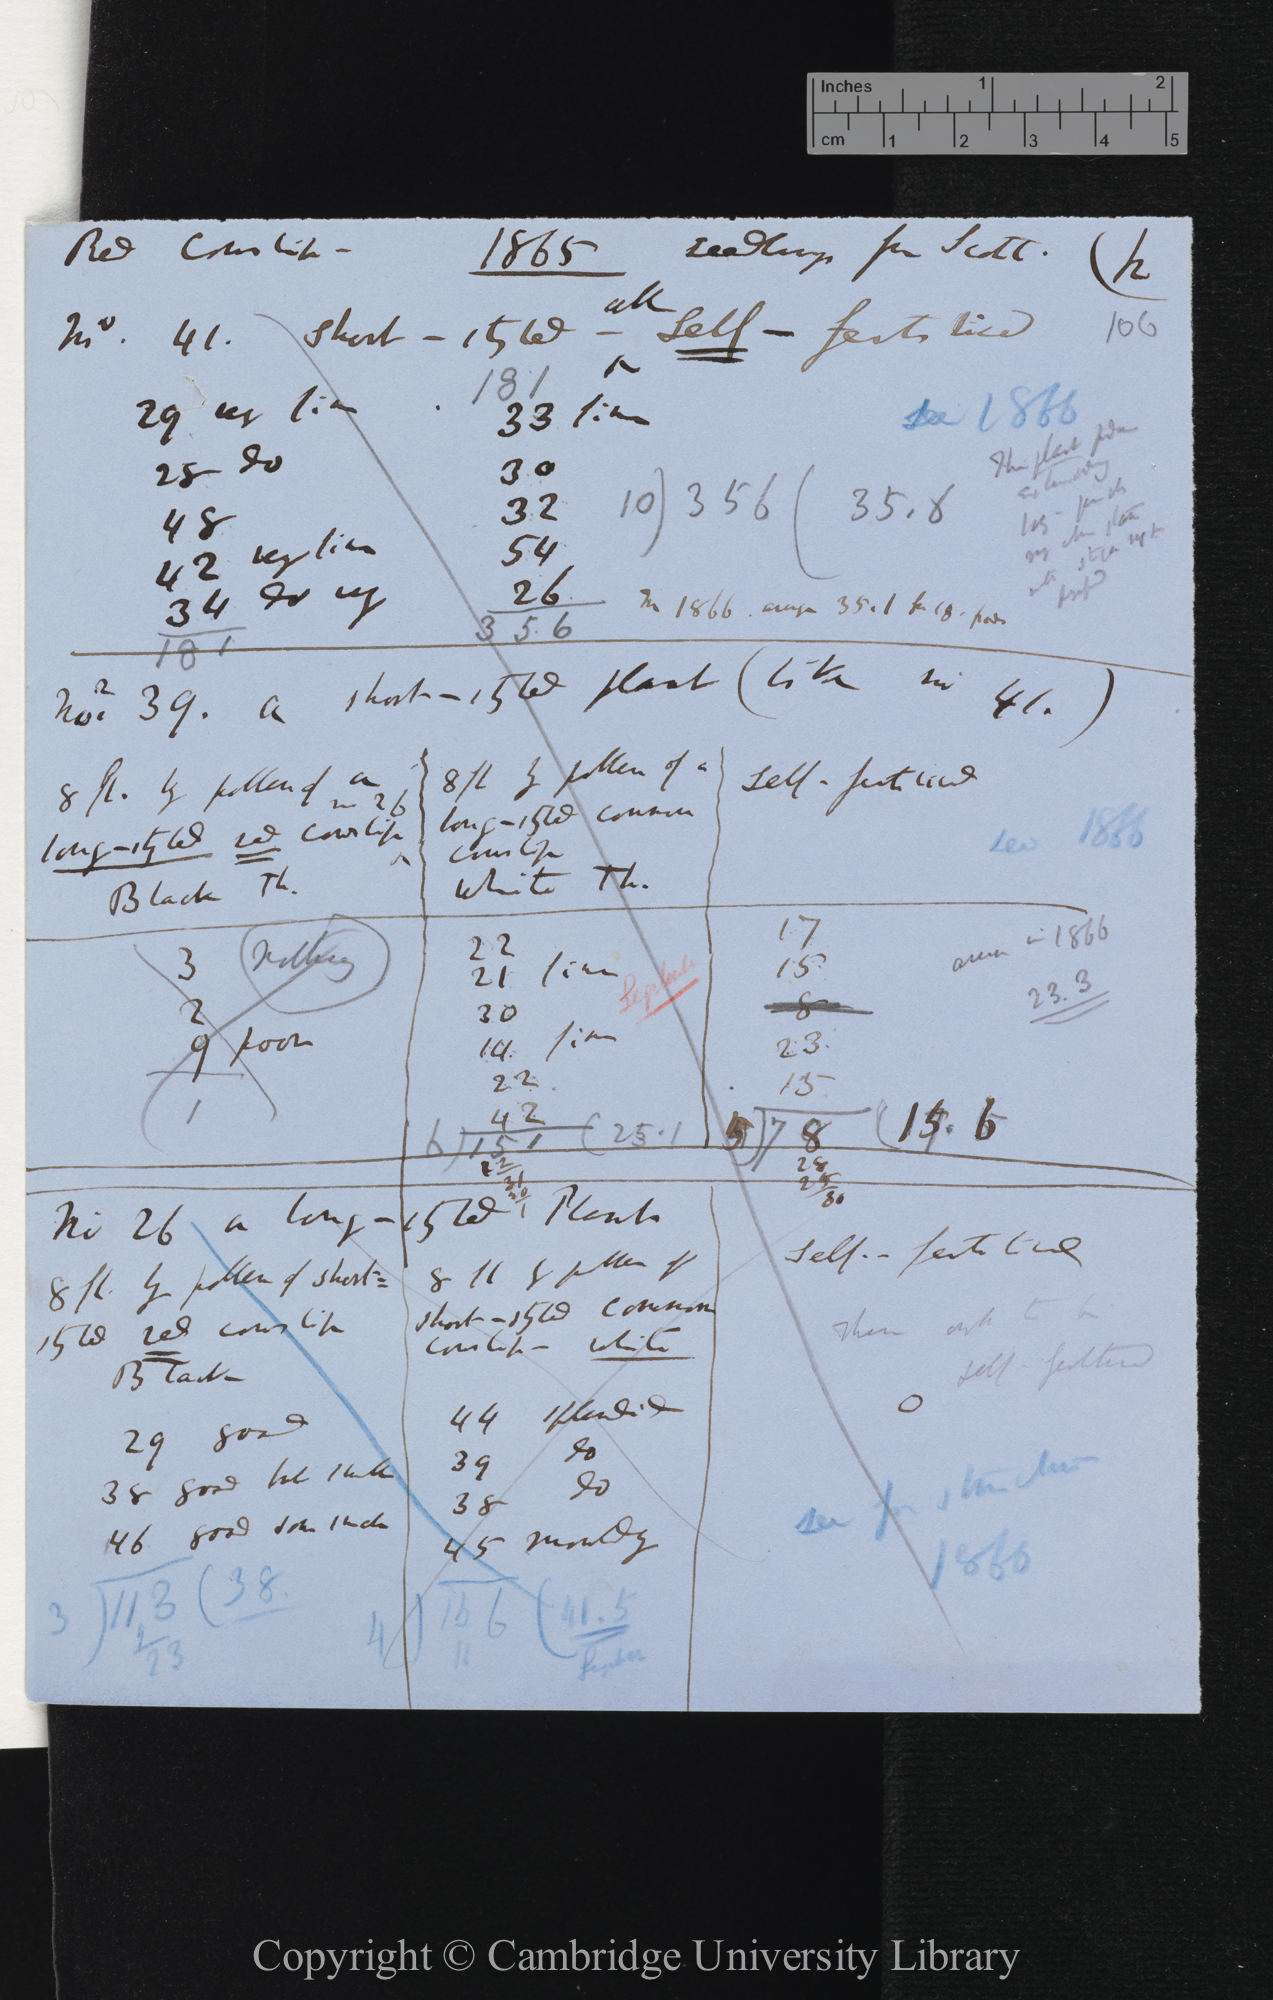 Inches 1 2
cm 1 2 3 4 5
Red Cowslip – 1865 seedlings from Scott. (2
106
No. 41. Short-styled – all Self-fertilised
29 very fine
28 do
48
42 very fine
34 do very
181
181
33 fine
30
32
54
26
356
10) 356 ( 35.6
see 1866
This plant
long-
In 1866 average 35.1 for 10 pods
No. 39. a short-styled plant (like no 41.)
8 fl. by pollen of a
no 26
long-styled red cowslip
Black Th.
8 fl by pollen of a
long-styled common
cowslip
White Th.
Self-fertilised
see 1866
3 nothing
2
9 poor
1
22
21 fine
30
14 fine
22
42
6) 151 ( 25.1
17
15
8
23
15
5) 78 ( 15.6
28
25
30
in 1866
23.3
No 26 a long-styled Plant
8 fl. by pollen of short-
styled red cowslip
Black
29 good
38 good but small
46 good some small
3) 113 ( 38.
23
8 fl by pollen of
short-styled common
cowslip – white
44 splendid
39 do
38 do
45 mouldy
4) 166 ( 41.5
Self-fertilised
These ought to be
self-fertilised
0
see for structure
1866
Copyright © Cambridge University Library